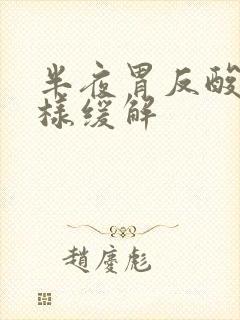 半夜胃反酸
樣缓解
趙慶彪